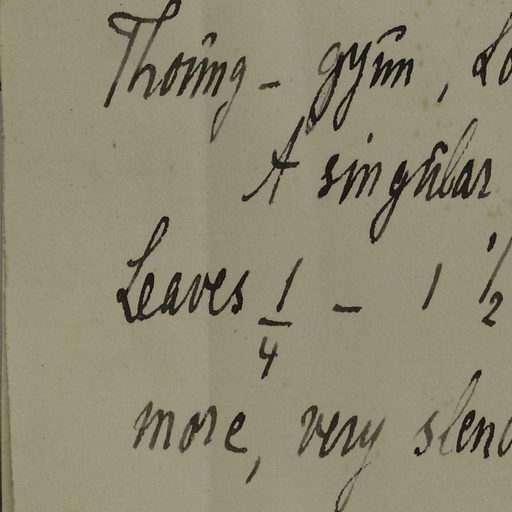 Thoung - gyun, Lo
A singular
Leaves 1/4 - 1 1/2
more, very slend